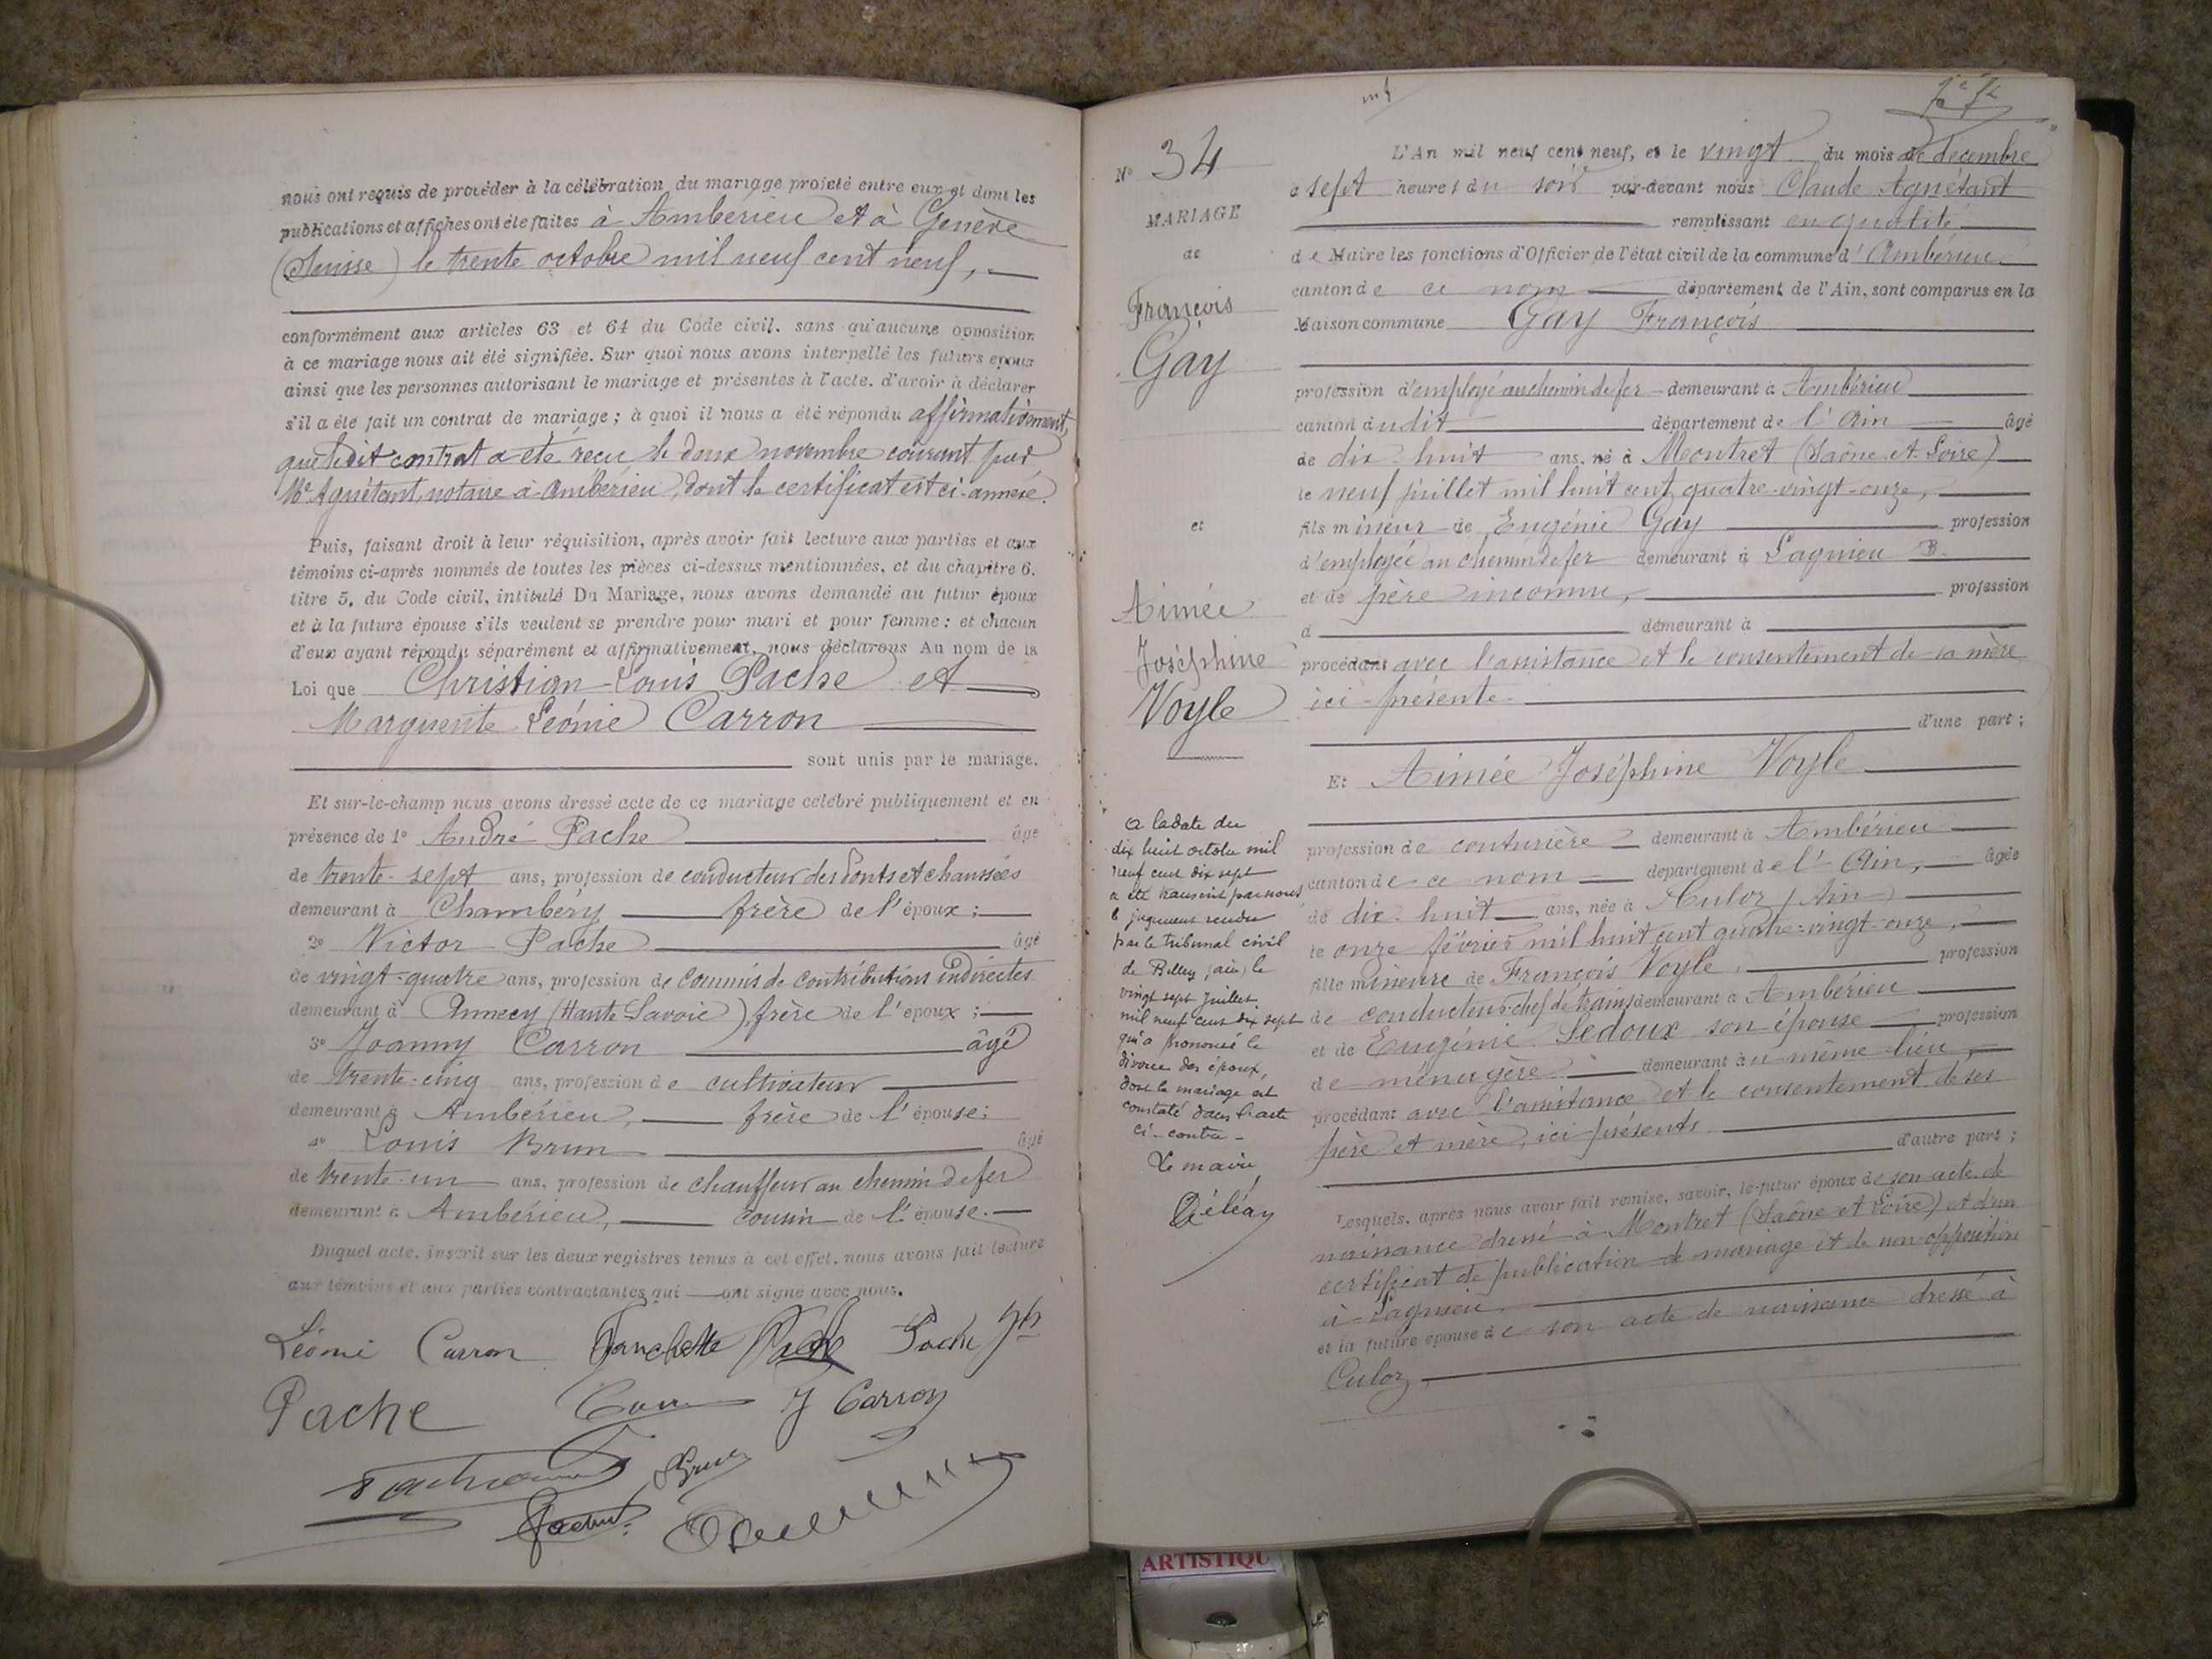 nous ont requis de procéder à la célébration du mariage projeté entre eux et dont les
publications et affiches ont été faites à Ambérieu et à Genève
(Suisse) le trente octobre mil neuf cent neuf,
conformément aux articles 63 et 64 du Code civil. sans qu'aucune opposition
à ce mariage nous ait été signifiée. Sur quoi nous avons interpellé les futurs epoux
ainsi que les personnes autorisant le mariage et présentes à l'acte. d'avoir à déclarer
s'il a été fait un contrat de mariage ; à quoi il nous a été répondu affirmativement,
que ledit contrat a été recu le deux novembre courant par
Me Agnétant, notaire à Ambérieu, dont le certificat est ci-annexé.
Puis, faisant droit à leur réquisition, après avoir fait lecture aux parties et aux
témoins ci-après nommés de toutes les pièces ci-dessus mentionnées, et du chapitre 6.
titre 5, du Code civil, intitulé Du Mariage, nous avons demandé au futur époux
et à la future épouse s'ils veulent se prendre pour mari et pour femme : et chacun
d'eux ayant répondu séparément et affirmativement, nous déclarons Au nom de la
Loi que Christian-Louis Pache et
Marguerite Léonie Carron
sont unis par le mariage.
Et sur-le-champ nous avons dressé acte de ce mariage célébré publiquement et en
présence de 1° André Pache âgé
de trente-sept ans, profession de conducteur des Ponts et chaussées
demeurant à Chambéry frère de l'époux ;
2° Victor Pache âgé
de vingt-quatre ans, profession de commis de contributions indirectes
demeurant à Annecy (Haute-Savoie), frère de l'époux ;
3° Joanny Carron âgé
de trente-cinq ans, profession de cultivateur
demeurant à Ambérieu, frère de l'épouse ;
4° Louis Brun âgé
de trente-un ans, profession de chauffeur au chemin de fer
demeurant à Ambérieu, cousin de l'épouse.
Duquel acte, inscrit sur les deux registres tenus à cet effet. nous avons fait lecture
aux témoins et aux parties contractantes qui ont signé avec nous.
Léonie Carron Pache
Pache J Carron
N° 34
MARIAGE
de
François
Gay
et
Aimée
Joséphine
Voyle
a la date du
dix huit octobre mil
neuf cent dix sept
a été transcrit par nous
le jugement rendu
par le tribunal civil
de Belley, ain, le
vingt sept juillet
mil neuf cent dix sept
qui a prononcé le
divorce des époux,
dont le mariage est
constaté dans l'acte
ci-contre -
Le maire,
L'An mil neuf cent neuf, et le vingt du mois de décembre
à sept heures du soir par-devant nous Claude Agnétant
remplissant en qualité
de Maire les fonctions d'Officier de l'état civil de la commune d'Ambérieu
canton de ce nom département de l'Ain, sont comparus en la
Maison commune Gay François
profession d'employé au chemin de fer demeurant à Ambérieu
canton dudit département de l'Ain âgé
de dix-huit ans, né à Montret (Saône-et-Loire)
le neuf juillet mil huit cent quatre-vingt-onze,
fils mineur de Eugénie Gay profession
d'employée au chemin de fer demeurant à Lagnieu B.
et de père inconnu, profession
d demeurant à
procédant avec l'assistance et le consentement de sa mère
ici-présente
d'une part ;
Et Aimée Joséphine Voyle
profession de couturière demeurant à Ambérieu
canton de ce nom département de l'Ain, âgée
de dix-huit ans, née à Culoz (Ain)
le onze février mil huit cent quatre-vingt-onze,
fille mineure de François Voyle, profession
de conducteur-chef de train, demeurant à Ambérieu
et de Eugénie Ledoux son épouse profession
de ménagère demeurant au même lieu,
procédant avec l'assistance et le consentement de ses
père et mère, ici présents
d'autre part ;
Lesquels. après nous avoir fait remise, savoir, le futur époux de son acte de
naissance dressé à Montret (Saône et Loire) et d'un
certificat de publication de mariage et de non-opposition
à Lagnieu
et la future épouse de son acte de naissance dressé à
Culoz
ARTISTIQU